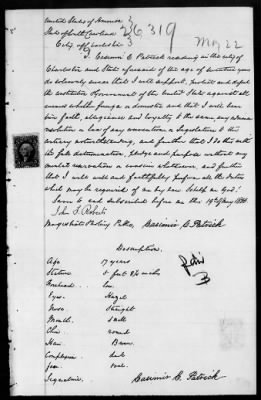 United States of America
State of South Carolina
City of Charleston
26319
May 22
I Casimir C. Patrick residing in the city of
Charleston and State aforesaid of the age of seventeen years
do solemnly swear that I will support, protect and defend
the constitution Government of the United States against all
enemies whether foreign or domestic and that I will bear
true faith, allegiance and loyalty to the same, any ordinance
resolution or law of any convention or Legislature to the
contrary notwithstanding, and further that I do this with
a full determination, pledge and purpose without any
mental reservation or evasion whatsoever, and further
that I will well and faithfully perform all the duties
which may be required of me by law So help me God!
Sworn to and subscribed before me this 19th of May
John T. Roberts
Casimir C. Patrick
Description
Age 17 years
Stature 5 feet inches
Forehead low
Eyes Hazel
Nose Straight
Mouth Small
Chin round
Hair Brown
Complexion dark
Face oval
Signature Casimir C. Patrick